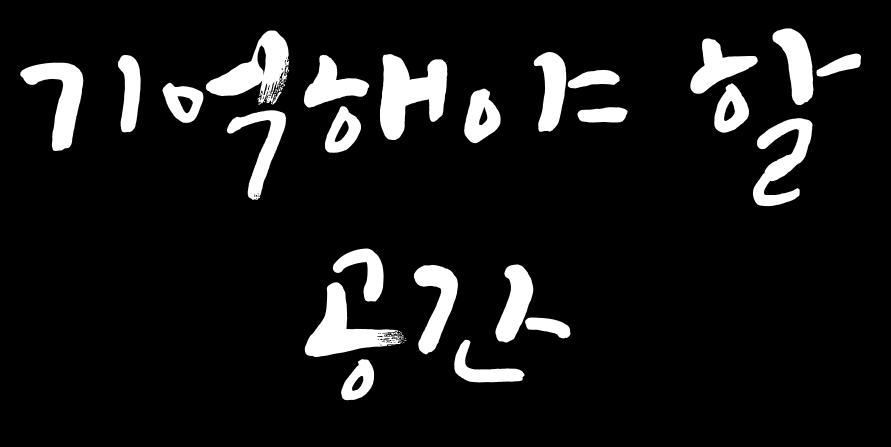 기억해야 할
공간